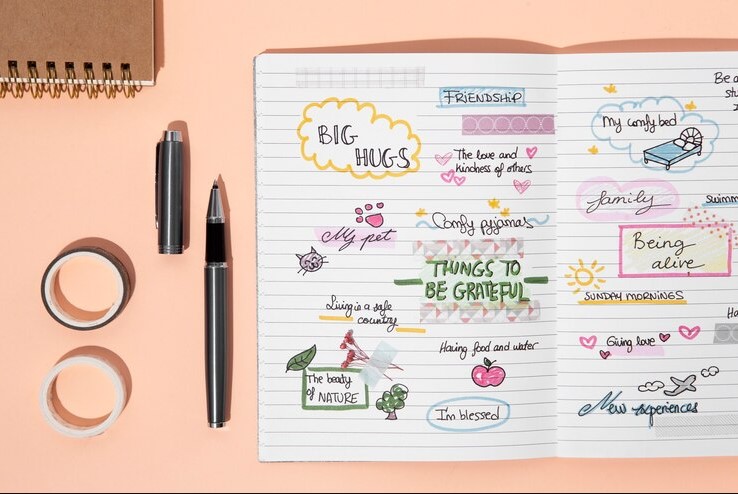 BIG
HUGS
FRIENDSHIP
The love and
kindness of others
My pet
Comfy pyjamas
THINGS TO
BE GRATEFUL
Living in a safe
country
Having food and water
The beauty
of NATURE
I'm blessed
Be a
My comfy bed
family
Being
alive
SUNDAY MORNINGS
Giving love
New experiences